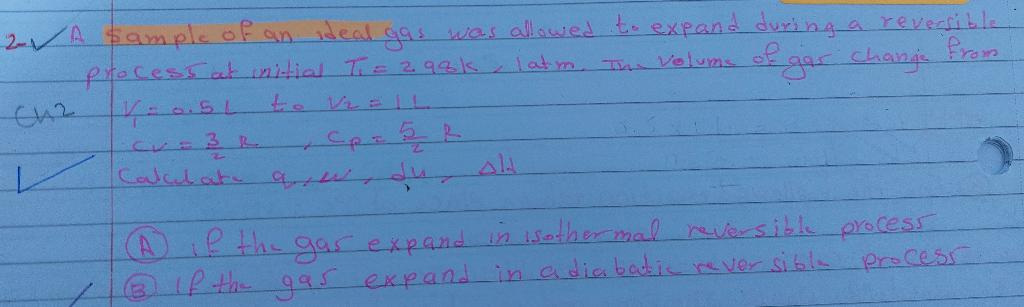 2- A sample of an ideal gas was allowed to expand during a reversible
process at initial T₁ = 298k, 1atm. The volume of gas change from
Ch2 V₁ = 0.5 L to V₂ = 1 L
Cv = 3/2 R , Cp = 5/2 R
Calculate q, w, du, ΔH
(A) if the gas expand in isothermal reversible process
(B) if the gas expand in adiabatic reversible process